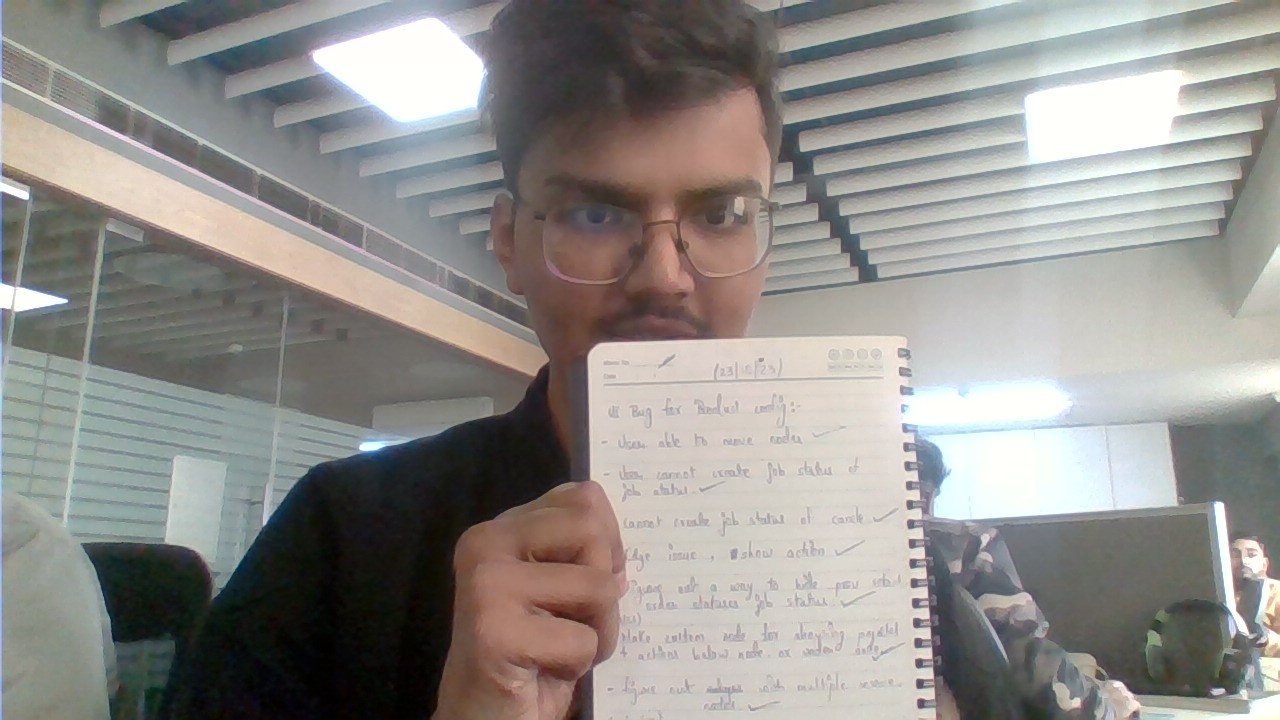 (23/10/23)
UI Bug for Product config:-
- User able to move nodes ✓
- User cannot create job status of
job status. ✓
cannot create job status at cancle ✓
Edge issue, show action ✓
Figure out a way to hide prev
order statuses job status. ✓
Make custom node for showing parallel
actions below node. or under node ✓
- figure out edges with multiple
nodes ✓